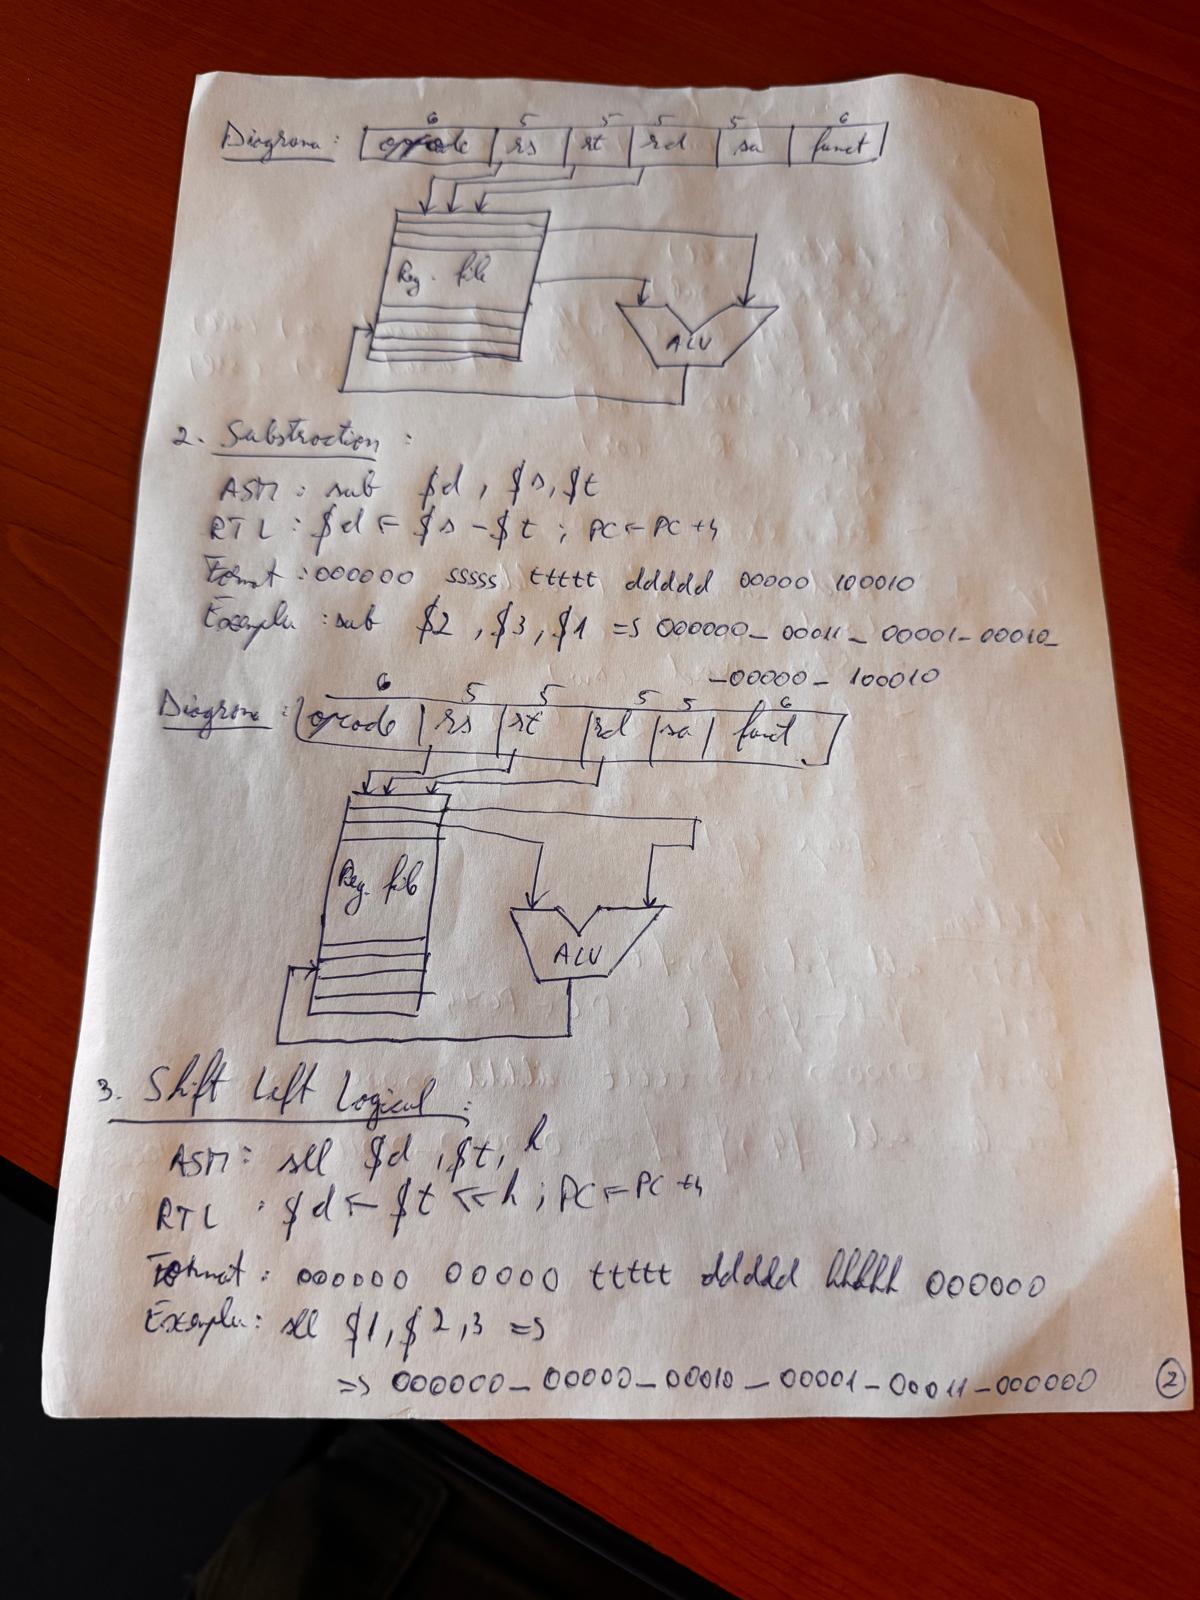 6 5 5 5 5 6
Diagrama: opcode rs rt rd sa funct
Reg. file
ALU
2. Substraction:
ASM: sub $d, $s, $t
RTL: $d ← $s - $t; PC ← PC + 4
Format: 000000 sssss ttttt ddddd 00000 100010
Exemplu: sub $2, $3, $1 => 000000_00011_00001_00010_
_00000_100010
6 5 5 5 5 6
Diagrama: opcode rs rt rd sa funct
Reg. file
ALU
3. Shift Left Logical:
ASM: sll $d, $t, h
RTL: $d ← $t << h; PC ← PC + 4
Format: 000000 00000 ttttt ddddd hhhhh 000000
Exemplu: sll $1, $2, 3 =>
=> 000000_00000_00010_00001_00011_000000
2